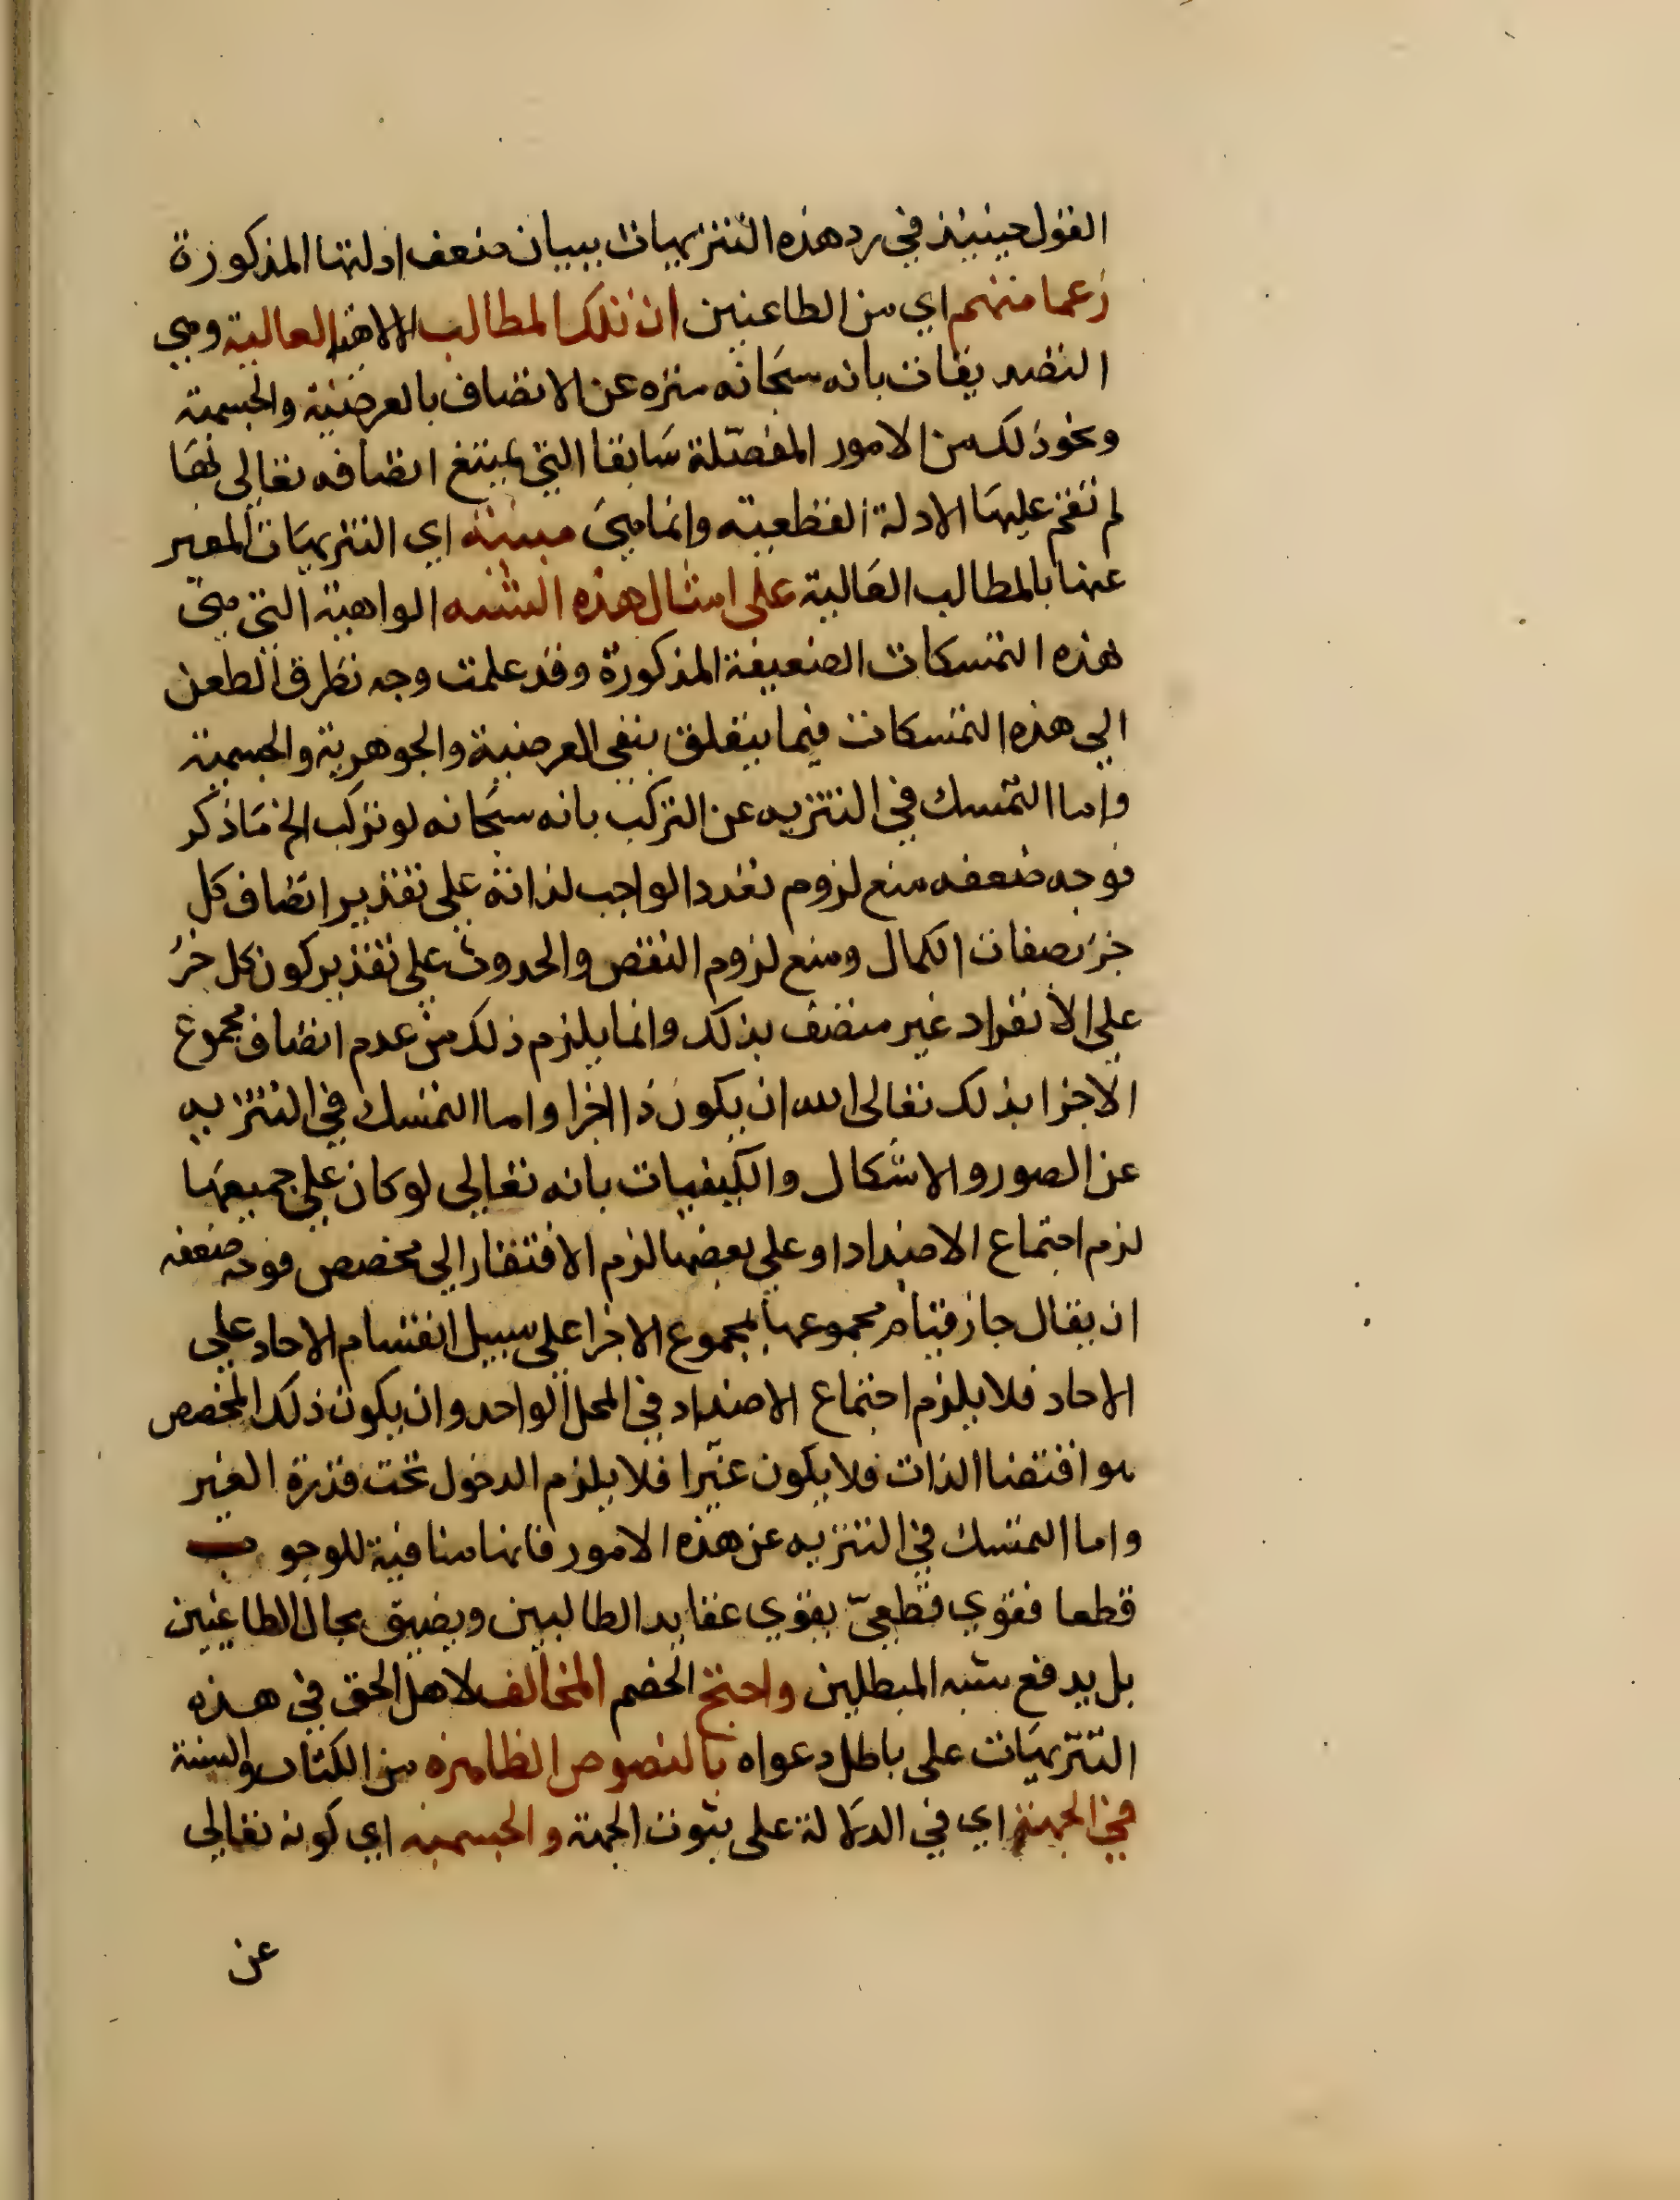 القول حينيذ في رد هذه التنزيهات ببيان ضعف ادلتها المذكورة
زعما منهم اي من الطاعنين ان تلك المطالب الالاهية العالية وهي
التصديقات بانه سبحانه منزه عن الاتصاف بالعرضية والجسمية
ونحو ذلك من الامور المفصّلة سَابقا التي يمتنع اتصافه تعالى بهَا
لم تقم عليهَا الادلة القطعية وانما هي مبنية اي التنزيهَات المعبر
عنها بالمطالب العَالية على امثال هذه الشبه الواهية التي هي
هذه التمسكات الضعيفة المذكورة وقد علمت وجه تطرق الطعن
الي هذه التمسكات فيما يتعلق بنفي العرضية والجوهرية والجسمية
واما التمسك في التنزيه عن التركب بانه سبحانه لو تركب الخ مَا ذكر
فوجه ضعفه منع لزوم تعدد الواجب لذاته علي تقدير اتصاف كل
جزء بصفات الكمال ومنع لزوم النقص والحدوث علي تقدير كون كل جزء
علي الانفراد غير متصف بذلك وانما يلزم ذلك من عدم اتصاف مجموع
الاجزا بذلك تعالى الله ان يكون ذا اجزا واما التمسك في التنزيه
عن الصور والاشكال والكيفيات بانه تعالي لو كان علي جميعهَا
لزم اجتماع الاضداد او علي بعضها لزم الافتقار الي مخصص فوجه ضعفه
ان يقال جاز قيام مجموعها بمجموع الاجزا علي سبيل انقسام الاحاد علي
الاحاد فلا يلزم اجتماع الاضداد في المحل الواحد وان يكون ذلك المخصص
هو اقتضا الذات فلا يكون غيرا فلا يلزم الدخول تحت قدرة الغير
واما التمسك في التنزيه عن هذه الامور فانها منافية للوجوب
قطعا فقوي قطعيّ يقوي عقايد الطالبين ويضيق مجال الطاعنين
بل يدفع شبه المبطلين واحتج الخصم المخالف لاهل الحق في هذه
التنزيهَات على باطل دعواه بالنصوص الظاهره من الكتاب والسنة
في الجهة اي في الدلالة على ثبوت الجهة والجسمية اي كونه تعالي
عن